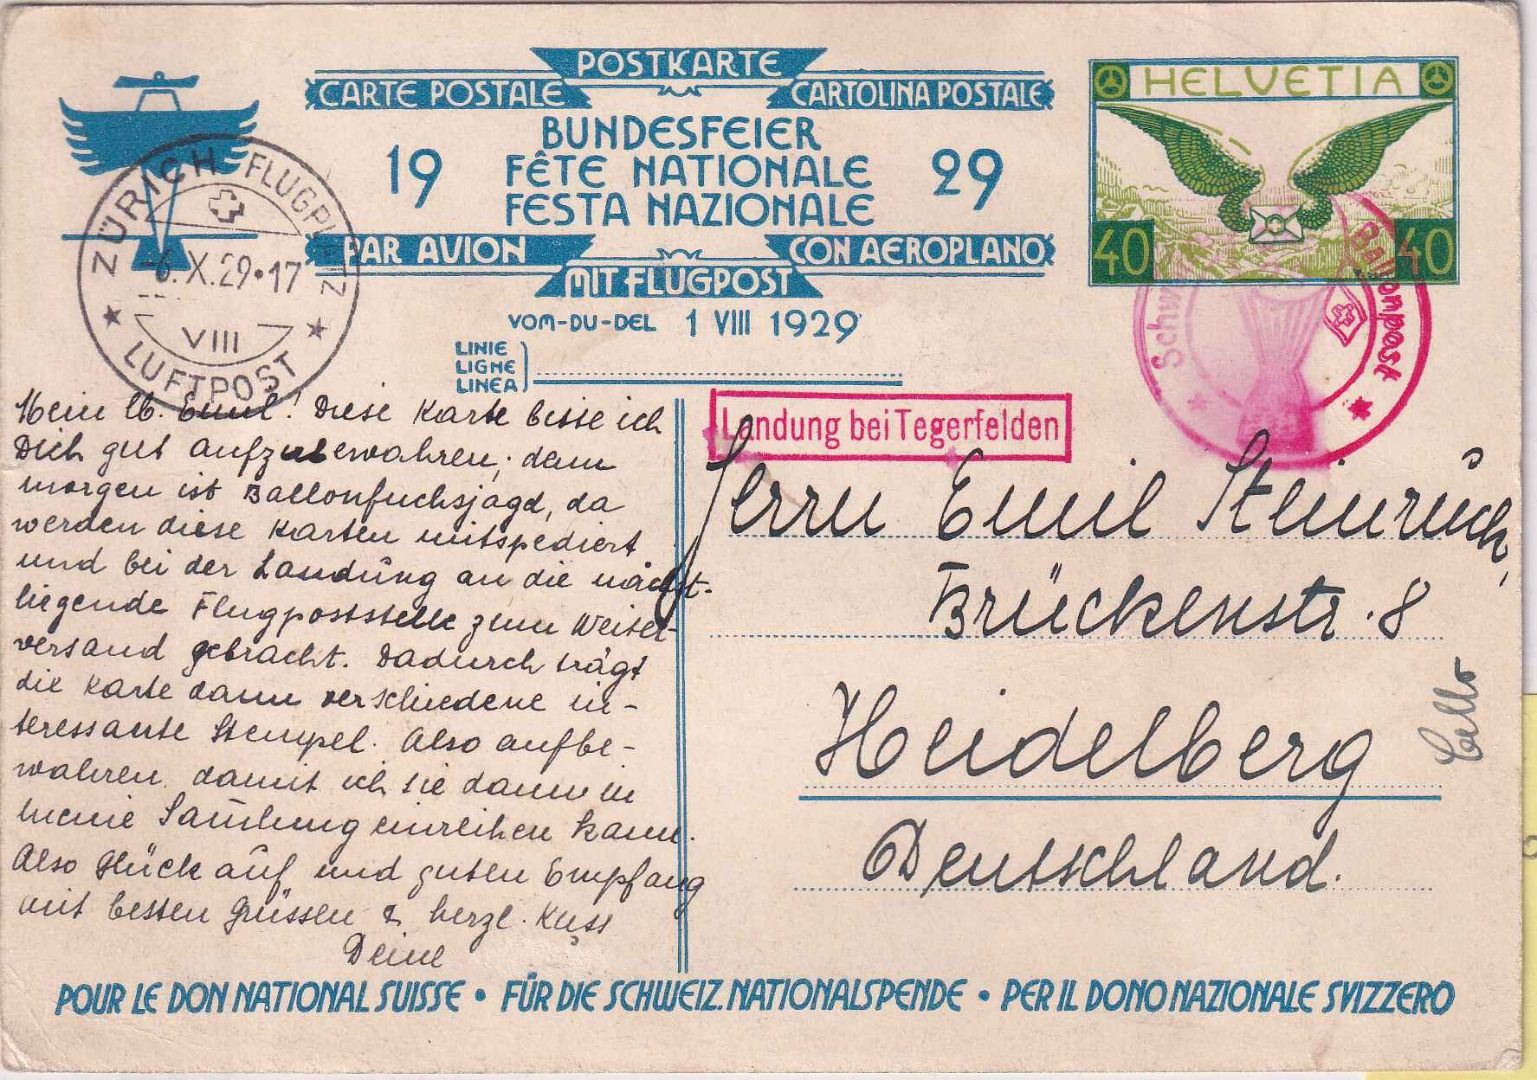 POSTKARTE
CARTE POSTALE
CARTOLINA POSTALE
19
BUNDESFEIER
FÊTE NATIONALE
FESTA NAZIONALE
29
PAR AVION
CON AEROPLANO
MIT FLUGPOST
VOM-DU-DEL 1 VIII 1929
LINIE
LIGNE
LINEA
HELVETIA
40
40
ZÜRICH FLUGPLATZ
-6.X.29•17
VIII
LUFTPOST
Schw
Ballonpost
Landung bei Tegerfelden
Mein lb. Emil! Diese Karte bitte ich
Dich gut aufzubewahren, denn
morgen ist Ballonfuchsjagd, da
werden diese Karten mitspediert
und bei der Landung an die nächst-
liegende Flugpoststelle zum Weiter-
versand gebracht. Dadurch trägt
die Karte dann verschiedene in-
teressante Stempel. Also aufbe-
wahren, damit ich sie dann in
meine Samlung einreihen kann.
Also Glück auf und guten Empfang
mit besten Grüssen & herzl. Kuss
Deine
Herrn Emil Steinrück,
Brückenstr. 8
Heidelberg
Deutschland.
POUR LE DON NATIONAL SUISSE • FÜR DIE SCHWEIZ. NATIONALSPENDE • PER IL DONO NAZIONALE SVIZZERO